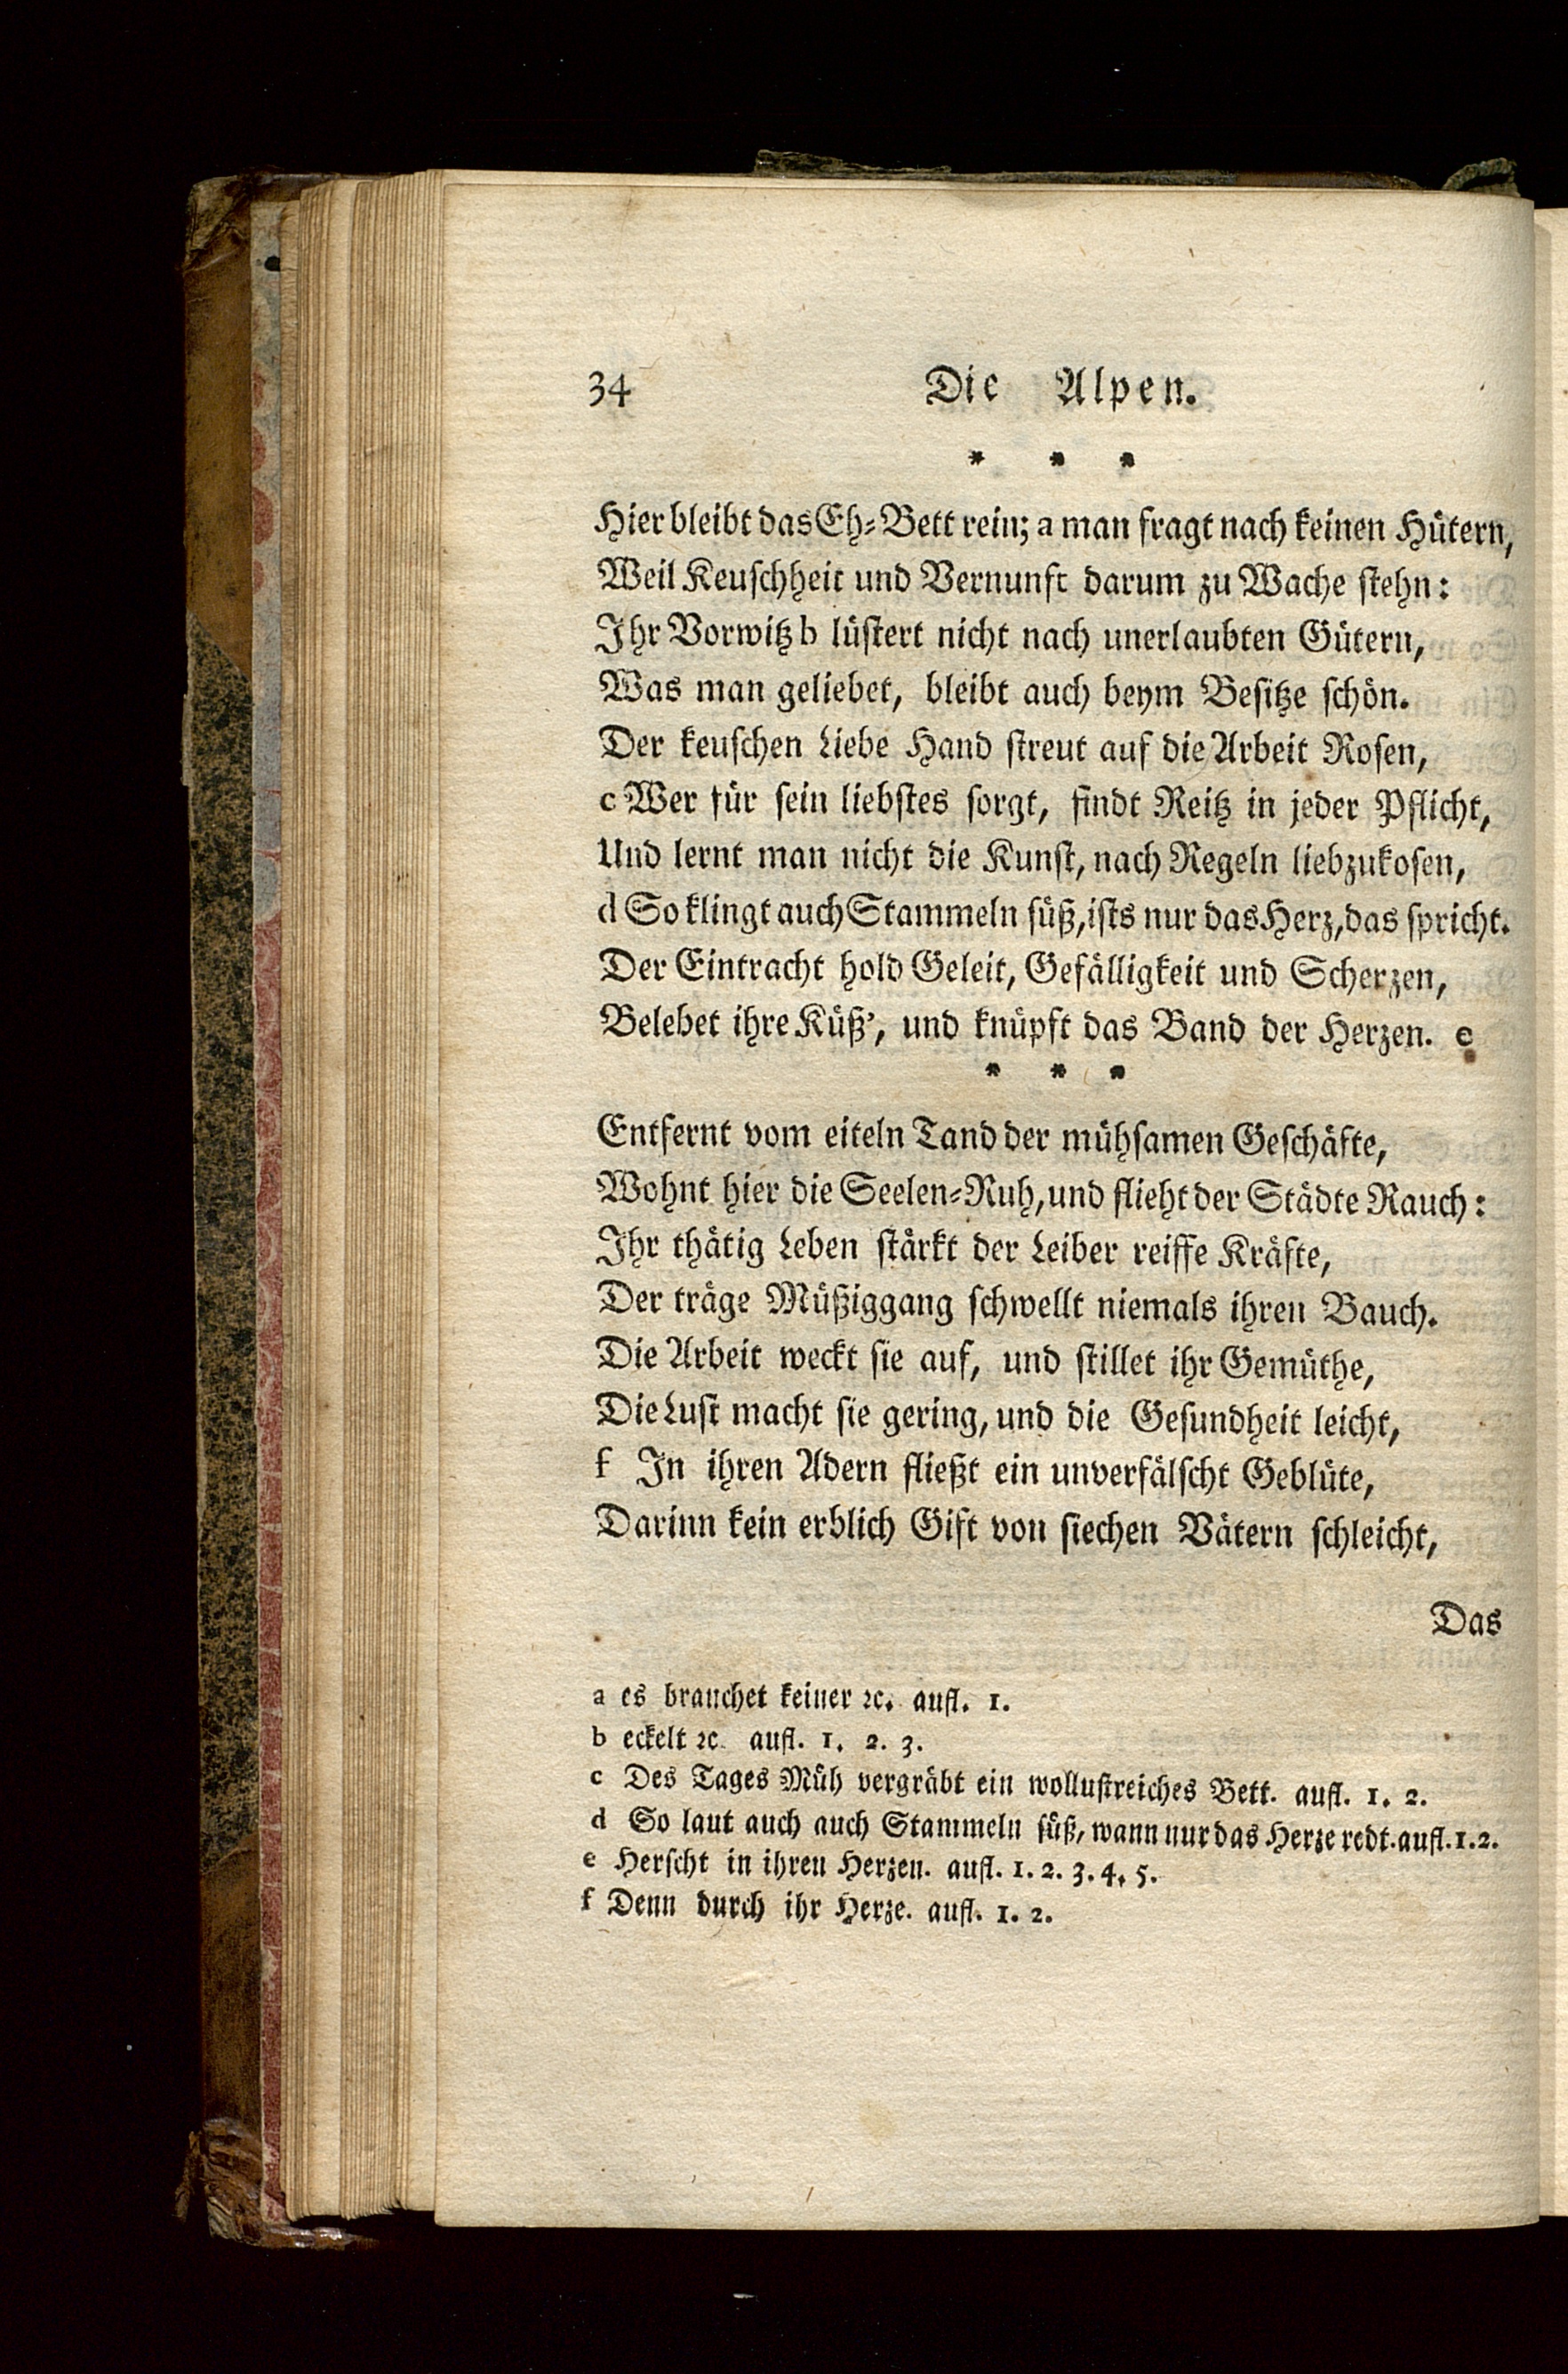 34 Die Alpen.
* * *
Hier bleibt das Eh-Bett rein; a man fragt nach keinen Hütern,
Weil Keuschheit und Vernunft darum zu Wache stehn:
Ihr Vorwitz b lüstert nicht nach unerlaubten Gütern,
Was man geliebet, bleibt auch beym Besitze schön.
Der keuschen Liebe Hand streut auf die Arbeit Rosen,
c Wer für sein liebstes sorgt, findt Reitz in jeder Pflicht,
Und lernt man nicht die Kunst, nach Regeln liebzukosen,
d So klingt auch Stammeln süß, ists nur das Herz, das spricht.
Der Eintracht hold Geleit, Gefälligkeit und Scherzen,
Belebet ihre Küß', und knüpft das Band der Herzen. e
* * *
Entfernt vom eiteln Tand der mühsamen Geschäfte,
Wohnt hier die Seelen-Ruh, und flieht der Städte Rauch:
Ihr thätig Leben stärkt der Leiber reiffe Kräfte,
Der träge Müßiggang schwellt niemals ihren Bauch.
Die Arbeit weckt sie auf, und stillet ihr Gemüthe,
Die Lust macht sie gering, und die Gesundheit leicht,
f In ihren Adern fließt ein unverfälscht Geblüte,
Darinn kein erblich Gift von siechen Vätern schleicht,
Das
a es brauchet keiner ꝛc. aufl. 1.
b eckelt ꝛc. aufl. 1. 2. 3.
c Des Tages Müh vergräbt ein wollustreiches Bett. aufl. 1. 2.
d So laut auch auch Stammeln süß, wann nur das Herze redt. aufl. 1. 2.
e Herscht in ihren Herzen. aufl. 1. 2. 3. 4. 5.
f Denn durch ihr Herze. aufl. 1. 2.